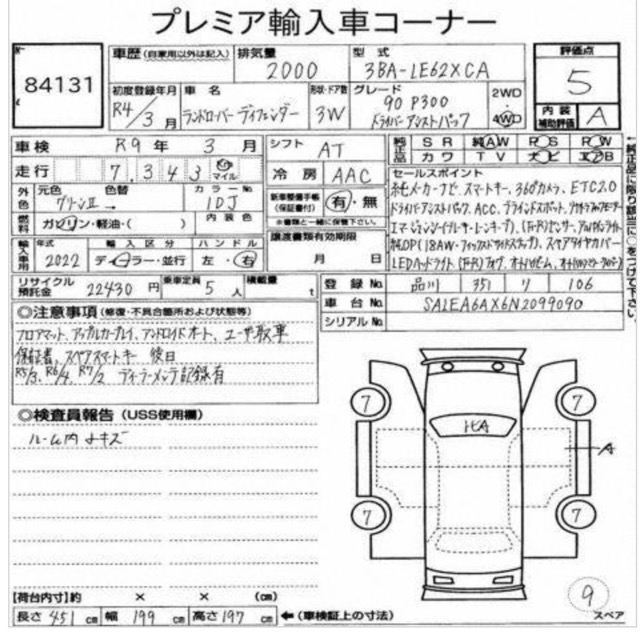 プレミア輸入車コーナー
84131
車歴 (自家用以外は記入)
排気量
2000
型式
3BA-LE62XCA
評価点
5
初度登録年月
R4/3月
車名
ランドローバー ディフェンダー
形状・ドア数
3W
グレード
90 P300
ドライバーアシストパック
2WD
4WD
内装
補助評価
A
車検 R9年 3月
シフト AT
純正品 SR 純AW RS RW
カワ TV ナビ エアB
走行 7,343 マイル
冷房 AAC
セールスポイント
純メーカーナビ、スマートキー、360°カメラ、ETC2.0
ドライバーアシストパック、ACC、ブラインドスポット
純OPC(18AW・フィックスドサイドステップ)、スペアタイヤカバー
LEDヘッドライト
外色 元色 色替 カラーNo.
グリーンII→ 1DJ
新車整備手帳
(保証書付)
有・無
※書類と一緒に保管下さい。
燃料 ガソリン・軽油・( )
内装色
譲渡書類有効期限
月 日
輸入車用 年式 輸入区分 ハンドル
2022 ディーラー・並行 左・右
リサイクル
預託金
22430円
乗車定員 5人
積載量 t
登録No. 品川 351 リ 106
車台No. SALEA6AX6N2099090
シリアルNo.
◎注意事項 (修復・不具合箇所および状態等)
フロアマット、アップルカープレイ、アンドロイドオート、ユーザ買取車
保証書、スペアスマートキー 後日
R5/3、R6/4、R7/2 ディーラーメンテ記録有
◎検査員報告 (USS使用欄)
ルーム内 小キズ
7
7
トビA
A
7
7
9
スペア
【荷台内寸】約 × × (cm)
長さ 451cm 幅 199cm 高さ 197cm ←(車検証上の寸法)